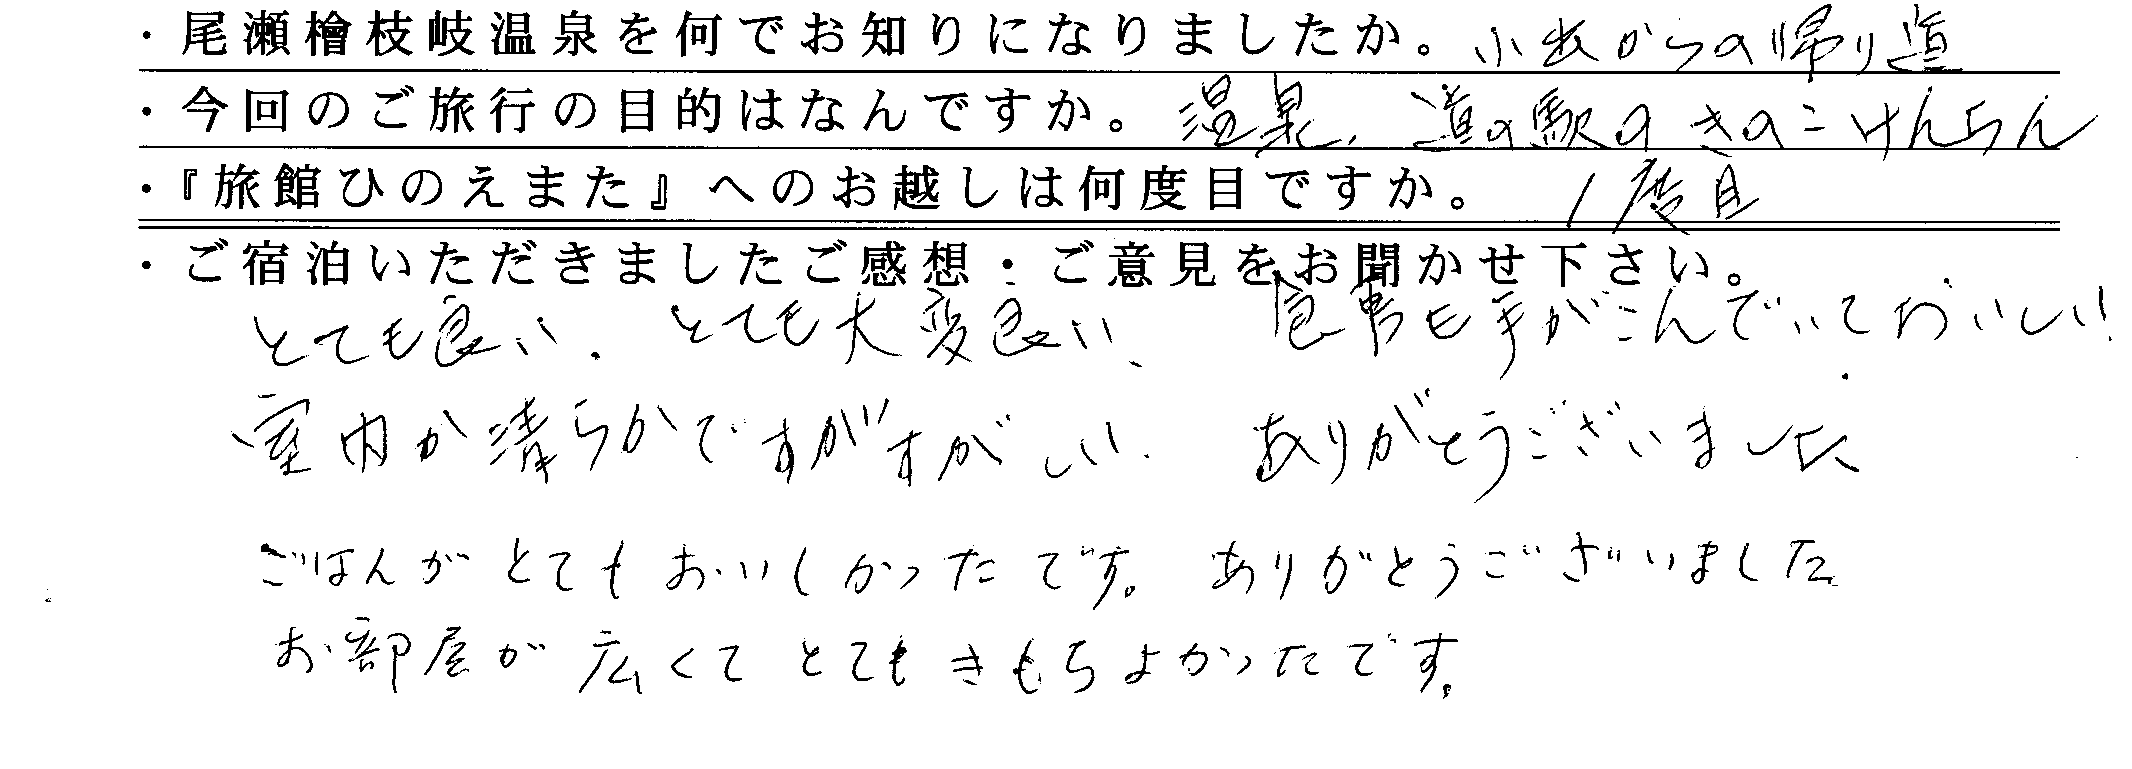 ・尾瀬檜枝岐温泉を何でお知りになりましたか。小出からの帰り道
・今回のご旅行の目的はなんですか。温泉、道の駅のきのこけんらん
・『旅館ひのえまた』へのお越しは何度目ですか。1度目
・ご宿泊いただきましたご感想・ご意見をお聞かせ下さい。
とても良い、とても大変良い、食事も手がこんでいておいしい!
室内が清らかですがすがしい、ありがとうございました
ごはんがとてもおいしかったです。ありがとうございました
お部屋が広くてとてもきもちよかったです。